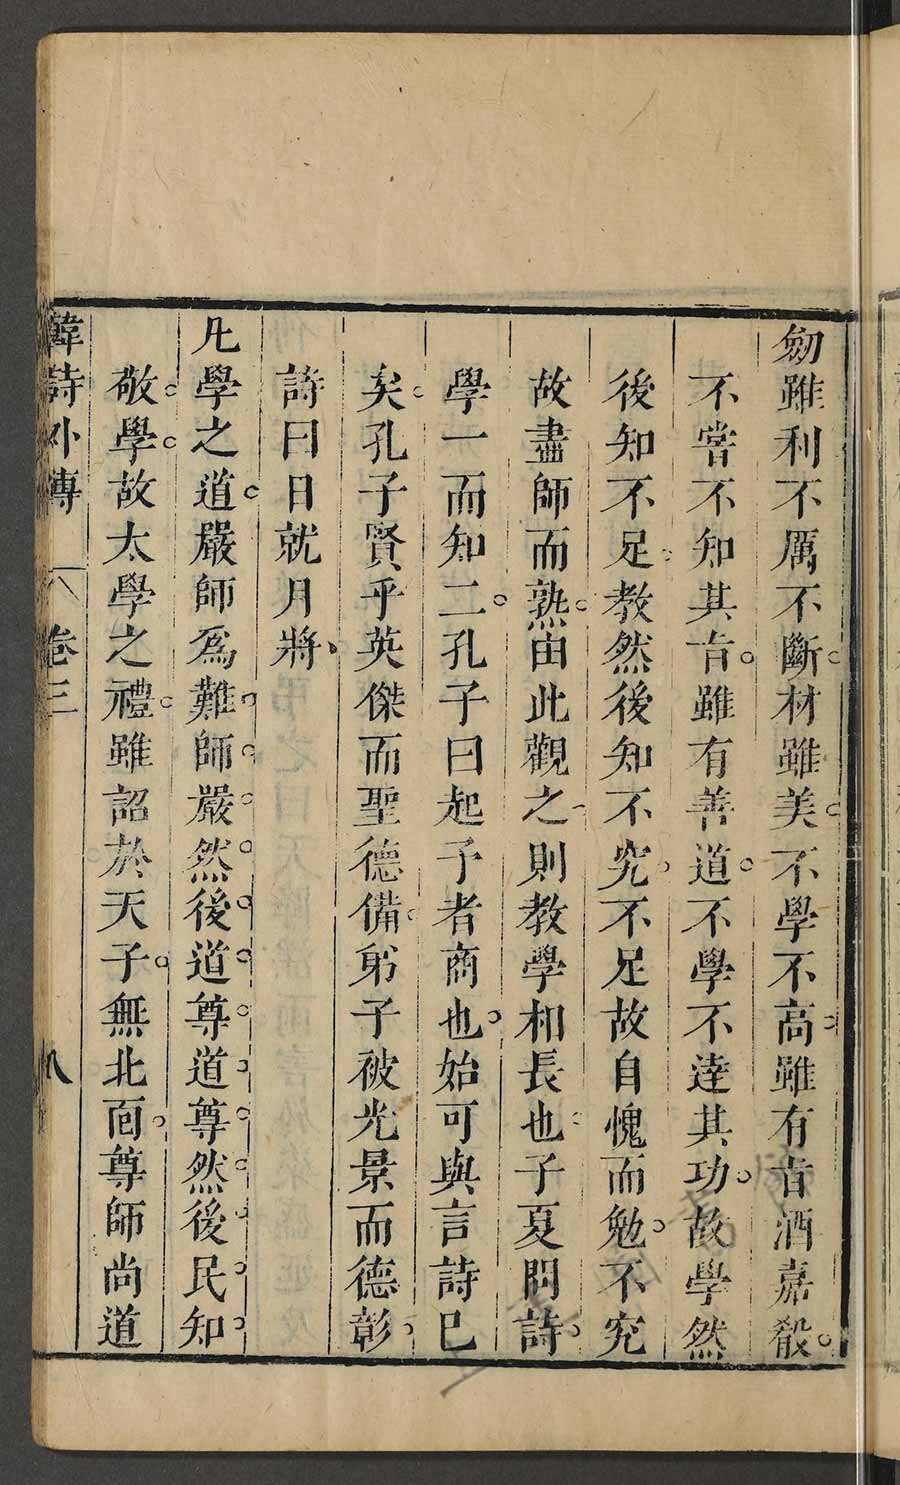 劒雖利不厲不斷材雖美不學不高雖有旨酒嘉殽
不嘗不知其旨雖有善道不學不達其功故學然
後知不足教然後知不究不足故自愧而勉不究
故盡師而熟由此觀之則教學相長也子夏問詩
學一而知二孔子曰起予者商也始可與言詩已
矣孔子賢乎英傑而聖德備弟子被光景而德彰
詩曰日就月將
凡學之道嚴師爲難師嚴然後道尊道尊然後民知
敬學故太學之禮雖詔於天子無北面尊師尚道
韓詩外傳 卷三 八